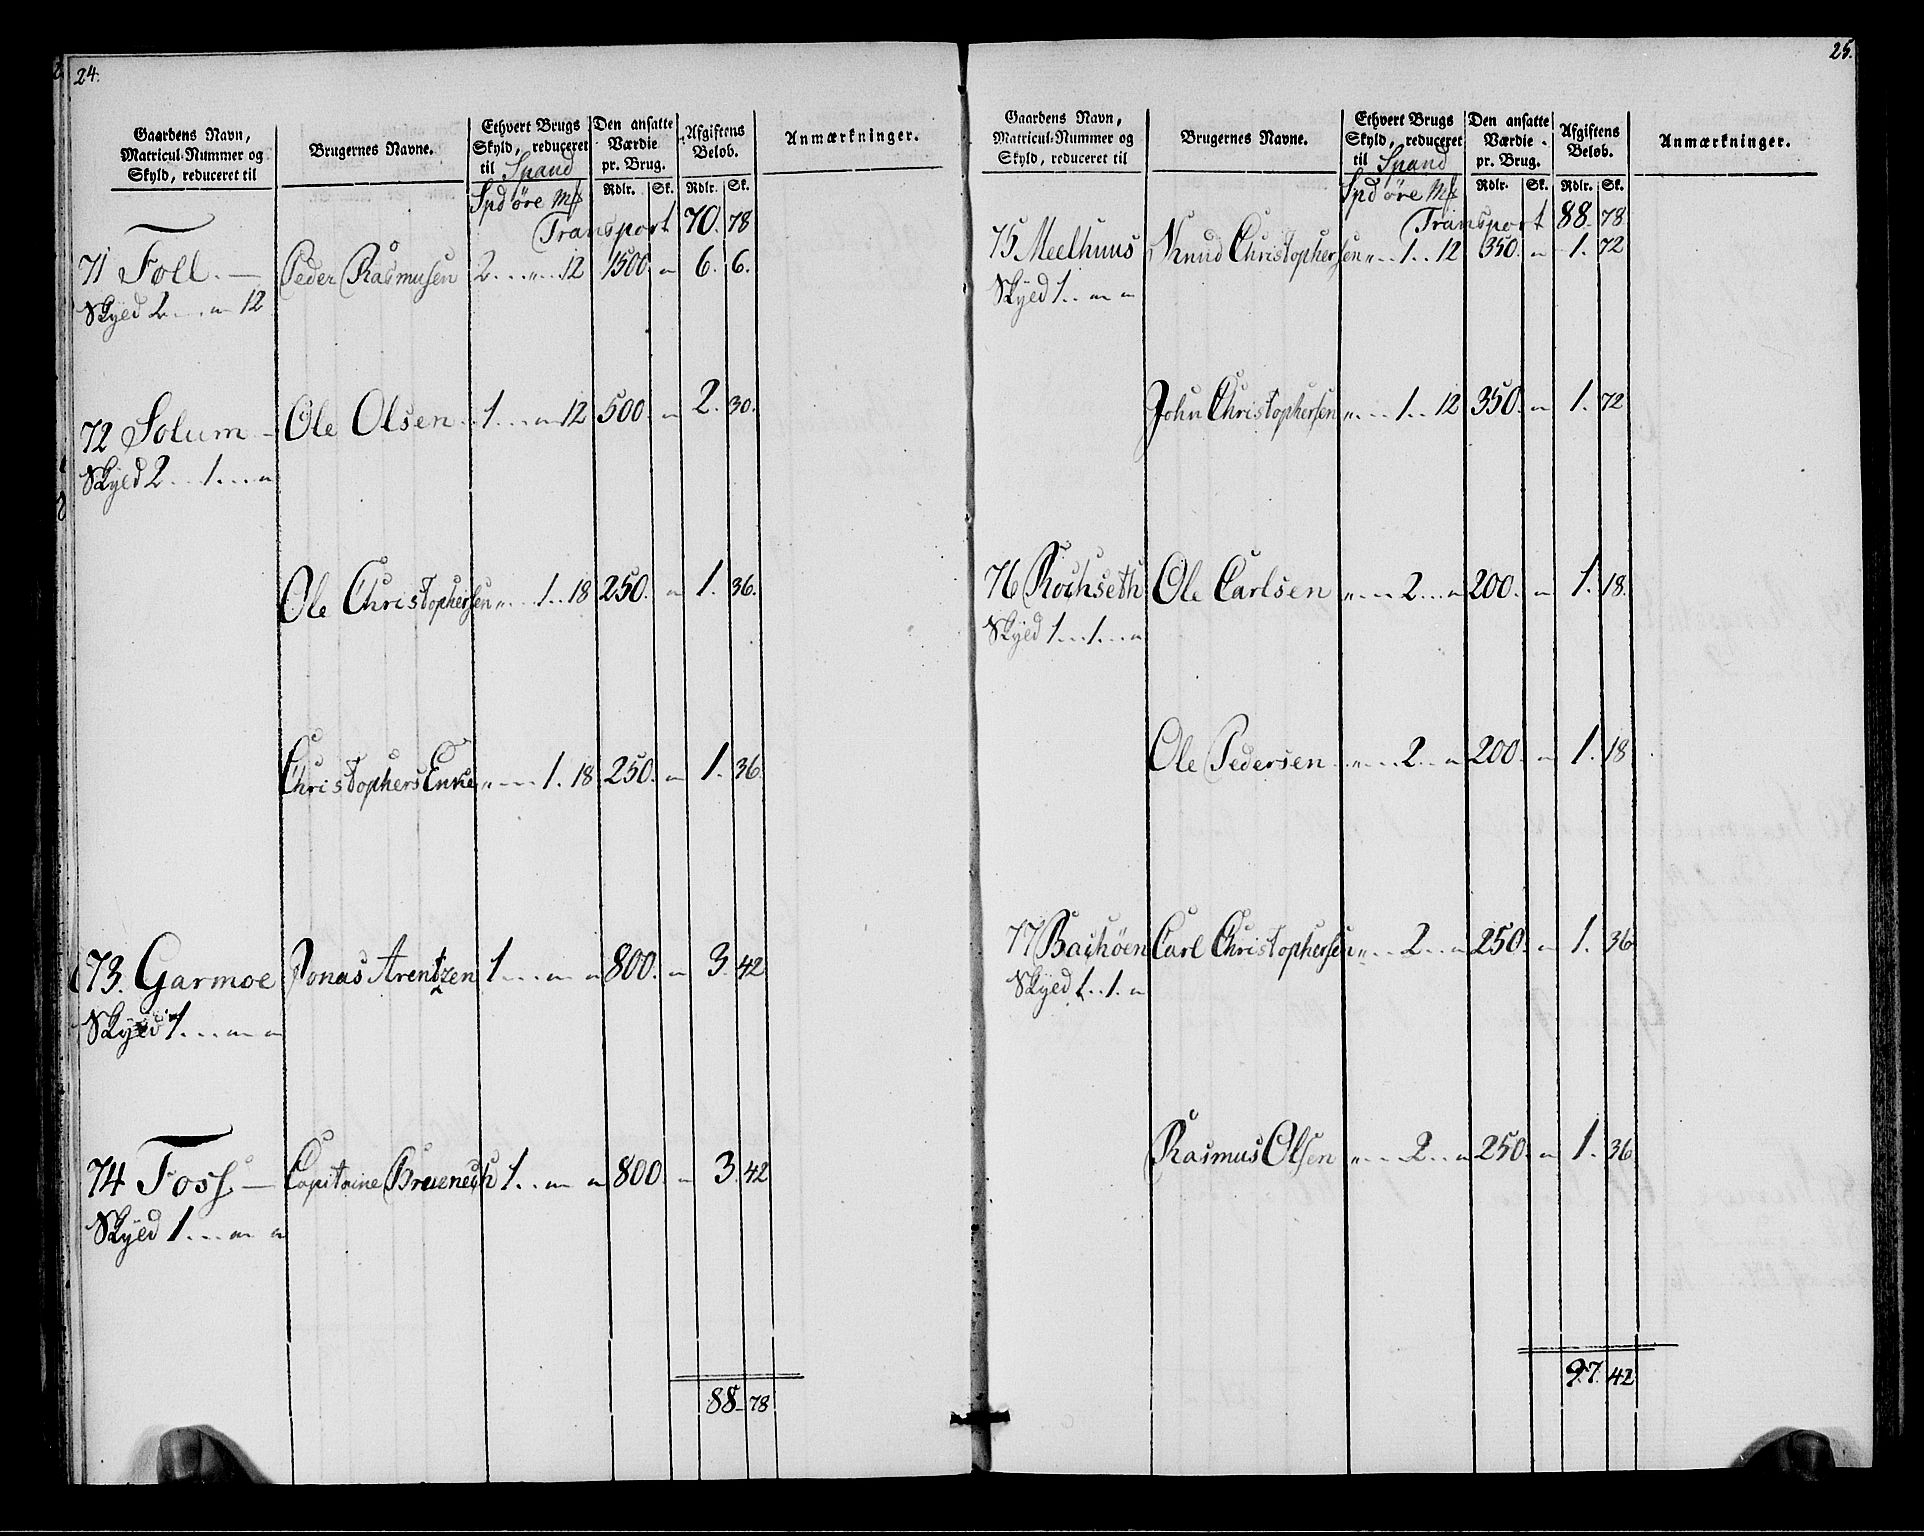 24.
Gaardens Navn, Matricul-Nummer og Skyld, reduceret til
Brugernes Navne.
Ethvert Brugs Skyld, reduceret til Spand
Den ansatte Værdie pr. Brug.
Afgiftens Beløb.
Anmærkninger.
Spd öre Mk Rdlr. Sk. Rdlr. Sk.
Transport 70. 78
71 Foll. — Peder Rasmusen 2 . . „ . . 12 1500 „ 6. 6.
Skyld 2 . . . „ 12
72 Solum — Ole Olsen 1 . . . „ 12 500. „ 2. 30.
Skyld 2 . . 1 . . . „
Ole Christophersen „ . . . 1 . . 18 250. „ 1. 36.
Christophers Enke „ . . . 1 . 18 250. „ 1. 36.
73. Garmoe Jonas Arentzen 1 . . . „ „ 800. „ 3. 42
Skyld 1 . . . „ „
74 Foss. — Capitaine 1 . . „ „ 800. „ 3. 42
Skyld 1 . . . „ „
88. 78
25.
Gaardens Navn, Matricul-Nummer og Skyld, reduceret til
Brugernes Navne.
Ethvert Brugs Skyld, reduceret til Spand
Den ansatte Værdie pr. Brug.
Afgiftens Beløb.
Anmærkninger.
Spd öre Mk Rdlr. Sk. Rdlr. Sk.
Transport 88. 78
75 Meelhuus Knud Christophersen „ . . 1 . . 12 350. „ 1. 72
Skyld 1 . . „ „
John Christophersen „ . . . 1 . . 12 350. „ 1. 72
76 Rochseth Ole Carlsen „ . . . 2 . . . „ 200. „ 1. 18.
Skyld 1 . . 1 . . . „
Ole Pedersen „ . . . 2 . . . „ 200. „ 1. 18
77 Bachöen Carl Christophersen „ . . 2 . . . „ 250. „ 1. 36
Skyld 1 . . 1 . „
Rasmus Olsen „ . . . 2 . . . „ 250. „ 1. 36
97. 42